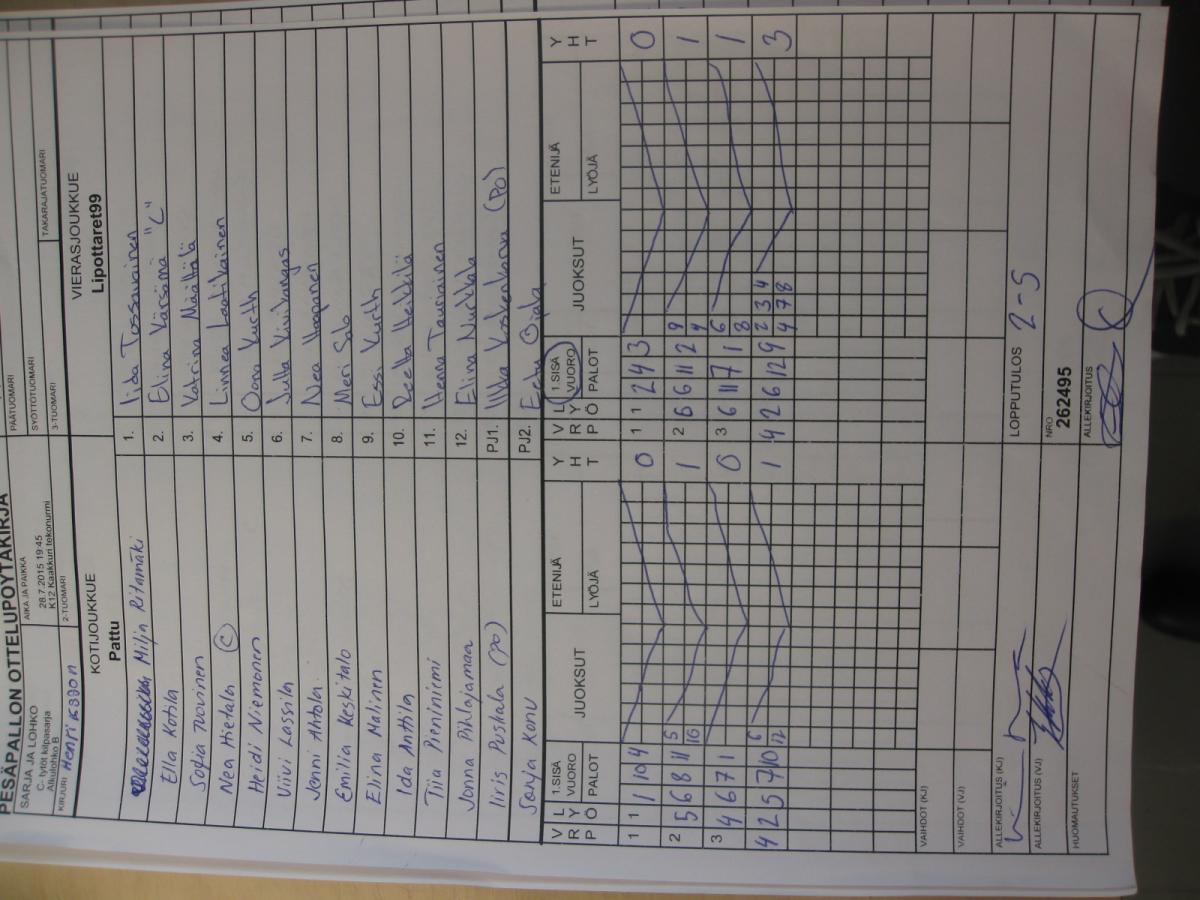 PESÄPALLON OTTELUPÖYTÄKIRJA
SARJA JA LOHKO
C- tytöt kilpasarja
Alkulohko B
AIKA JA PAIKKA
28.7.2015 19:45
K12 Kaakkuri tekonurmi
PÄÄTUOMARI
SYÖTTÖTUOMARI
KIRJURI
2-TUOMARI
3-TUOMARI
TAKARAJATUOMARI
KOTIJOUKKUE
Pattu
VIERASJOUKKUE
Lipottaret99
Milja Ritamäki
1. Iida Tossavainen
Ella Kotila
2. Elina Kärsämä "C"
Sofia Tuovinen
3. Katrina Määttälä
Nea Hietala C
4. Linnea Laatikainen
Heidi Niemonen
5. Oona Kurth
Viivi Lassila
6. Julla Kivikangas
Jenni Ahtola
7. Nea Haapanen
Emilia Keskitalo
8. Meri Salo
Elina Malinen
9. Essi Kurth
Ida Anttila
10. Peella Heikkilä
Tiia Pieninirmi
11. Henna Tauriainen
Jonna Pihlajamaa
12. Elina Nurkkala
Iiris Puskala (po)
PJ1. Ilkka Koskenkorva (PO)
Senja Konu
PJ2. Eetu Ojala
V R P L Y Ö 1.SISÄ VUORO PALOT JUOKSUT ETENIJÄ LYÖJÄ Y H T
V R P L Y Ö 1.SISÄ VUORO PALOT JUOKSUT ETENIJÄ LYÖJÄ Y H T
1 1 1 10 4 0
1 1 2 4 3 0
2 5 6 8 11 5 16 1
2 6 6 11 2 9 4 1
3 4 6 7 1 0
3 6 11 7 1 6 8 1
4 2 5 7 10 6 12 1
4 2 6 12 9 2 3 4 4 7 8 3
VAIHDOT (KJ)
VAIHDOT (VJ)
ALLEKIRJOITUS (KJ)
LOPPUTULOS 2-5
ALLEKIRJOITUS (VJ)
NRO
262495
HUOMAUTUKSET
ALLEKIRJOITUS